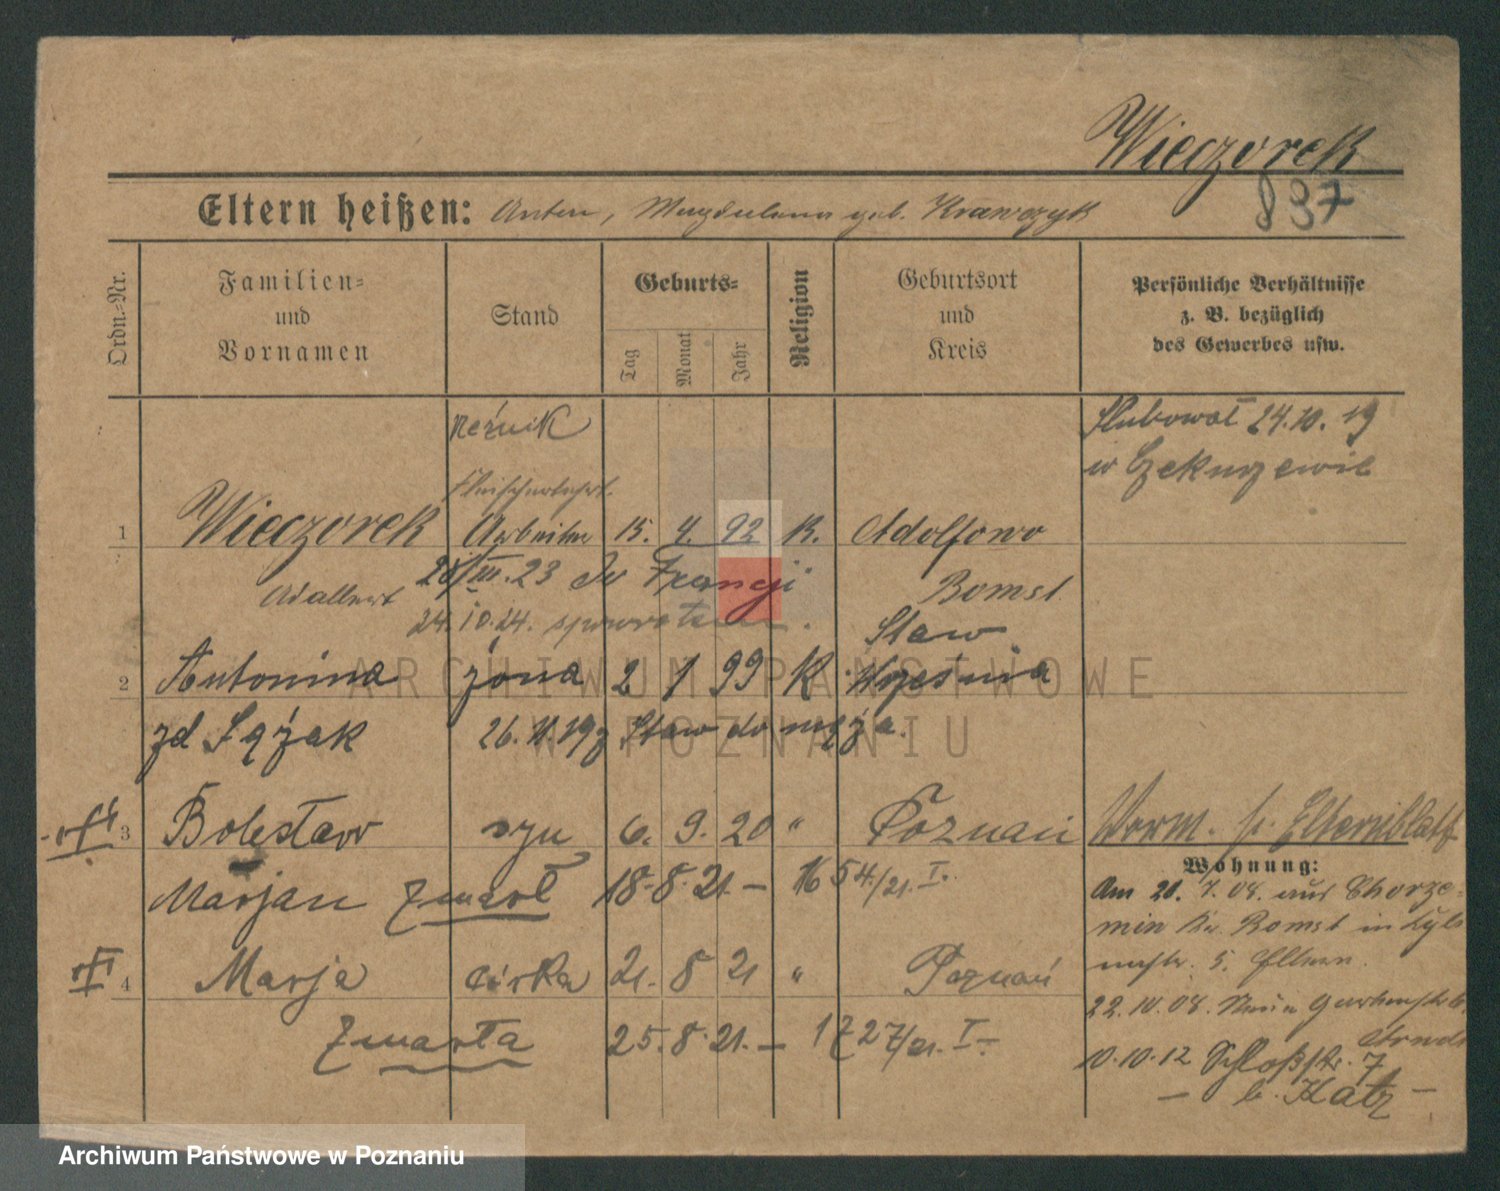 Wieczorek
837
Eltern heißen: Anton, Magdalena geb. Krawczyk
Ordn.-Nr.
Familien-
und
Vornamen
Stand
Geburts-
Tag
Monat
Jahr
Religion
Geburtsort
und
Kreis
Persönliche Verhältnisse
z. B. bezüglich
des Gewerbes usw.
rzeźnik
Ślubował 24.10.19
w
1 Wieczorek Arbeiter 15. 4. 92 K. Adolfowo
Adalbert 28/III.23 do Francji Bomst
24.10.24. spowrotem.
Staw
2 Antonina żona 2 1 99 K. Września
zd Sążak 26.11.19 z Staw do męża.
3 Bolesław syn 6. 9. 20 " Poznań
Marjan Zmarł 18. 8. 21. – 1654/21. I.
4 Marja córka 21. 8 21 " Poznań
Zmarła 25. 8. 21. – 1727/21. I.
Vorm. s. Elternblatt
Wohnung:
Am 20. 7. 08. aus Chorze-
min Kr. Bomst in
5. Eltern.
22.10.08.
10.10.12 Schloßstr. 7
– b. Katz –
ARCHIWUM PAŃSTWOWE
W POZNANIU
Archiwum Państwowe w Poznaniu